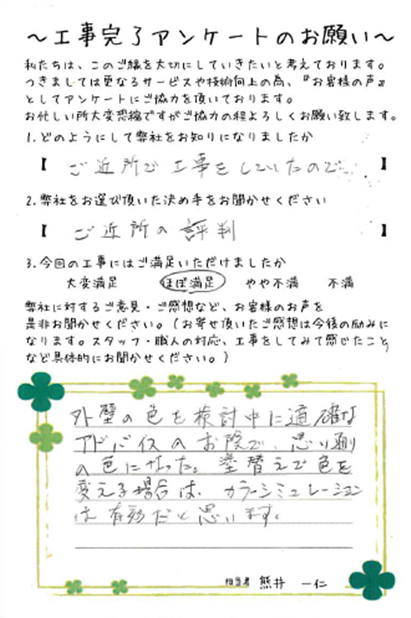 ～工事完了アンケートのお願い～
私たちは、このご縁を大切にしていきたいと考えております。
つきましては更なるサービスや技術向上の為、『お客様の声』
としてアンケートにご協力を頂いております。
お忙しい所大変恐縮ですがご協力の程よろしくお願い致します。
1.どのようにして弊社をお知りになりましたか
【 ご近所で工事をしていたので 】
2.弊社をお選び頂いた決め手をお聞かせください
【 ご近所の評判 】
3.今回の工事にはご満足いただけましたか
大変満足 ほぼ満足 やや不満 不満
弊社に対するご意見・ご感想など、お客様のお声を
是非お聞かせください。(お寄せ頂いたご感想は今後の励みに
なります。スタッフ・職人の対応、工事をしてみて感じたこと
など具体的にお聞かせください。)
外壁の色を検討中に適確な
アドバイスのお陰で、思い通り
の色になった。塗替えで色を
変える場合は、カラーシミュレーション
は有効だと思います。
担当者 熊井 一仁